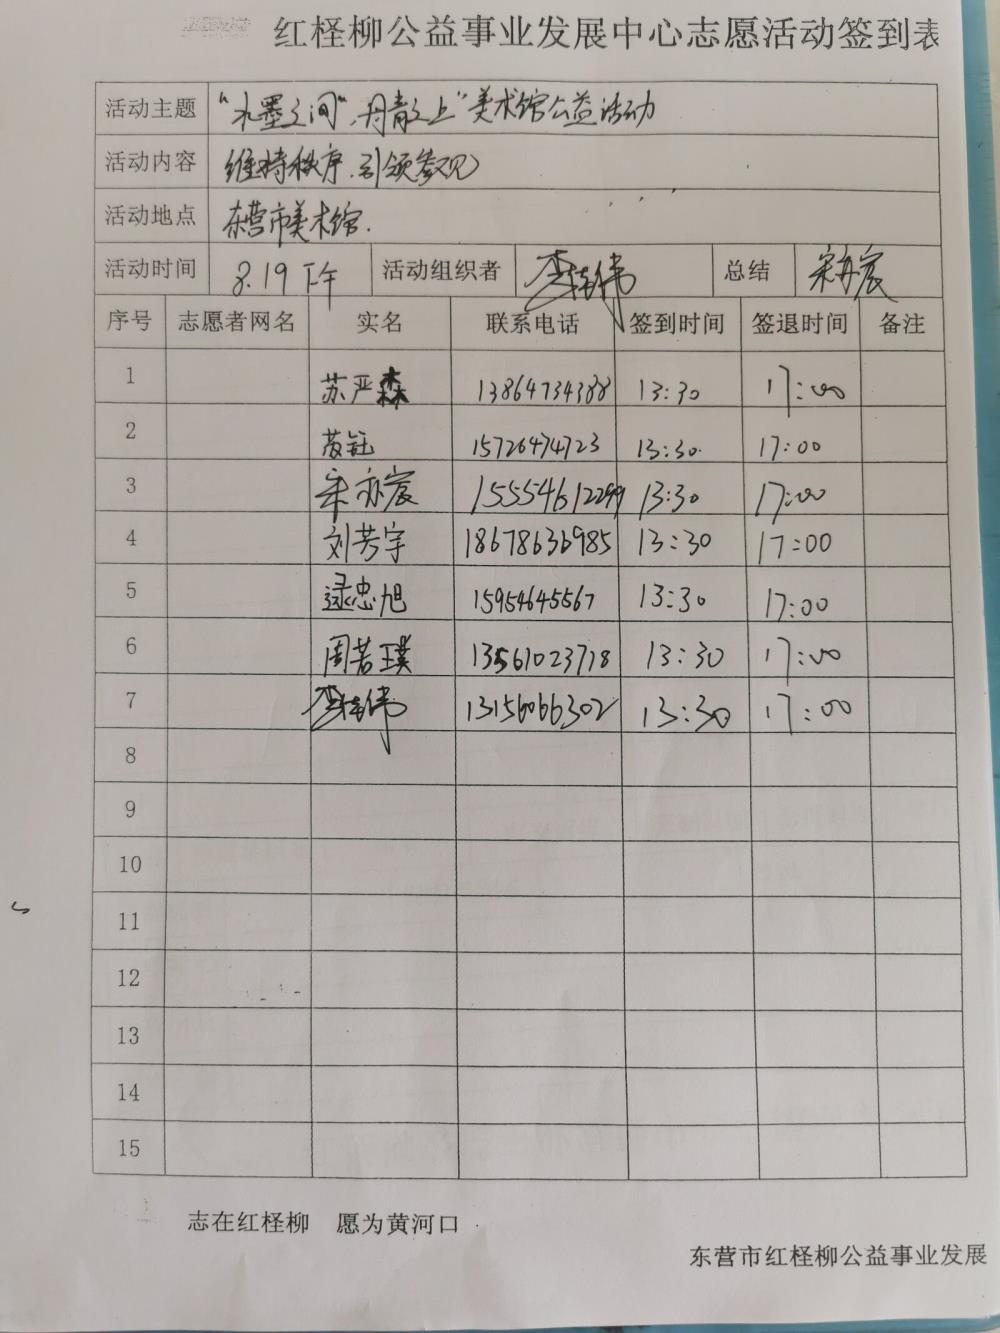 红柽柳公益事业发展中心志愿活动签到表
活动主题 “水墨之间”,丹青之上”美术馆公益活动
活动内容 维持秩序,引领参观
活动地点 东营市美术馆.
活动时间 8.19下午 活动组织者 总结 宋亦宸
序号 志愿者网名 实名 联系电话 签到时间 签退时间 备注
1 苏严森 13864734388 13:30 17:00
2 15726474723 13:30 17:00
3 宋亦宸 15554612299 13:30 17:00
4 刘芳宇 18678636985 13:30 17:00
5 逯忠旭 15954645567 13:30 17:00
6 周若璞 13561023718 13:30 17:00
7 13156066302 13:30 17:00
8
9
10
11
12
13
14
15
志在红柽柳 愿为黄河口
东营市红柽柳公益事业发展